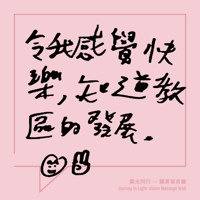 令我感覺快
樂，知道教
區的發展．
樂光同行 － 願景留言牆
Journey in Light: Vision Message Wall